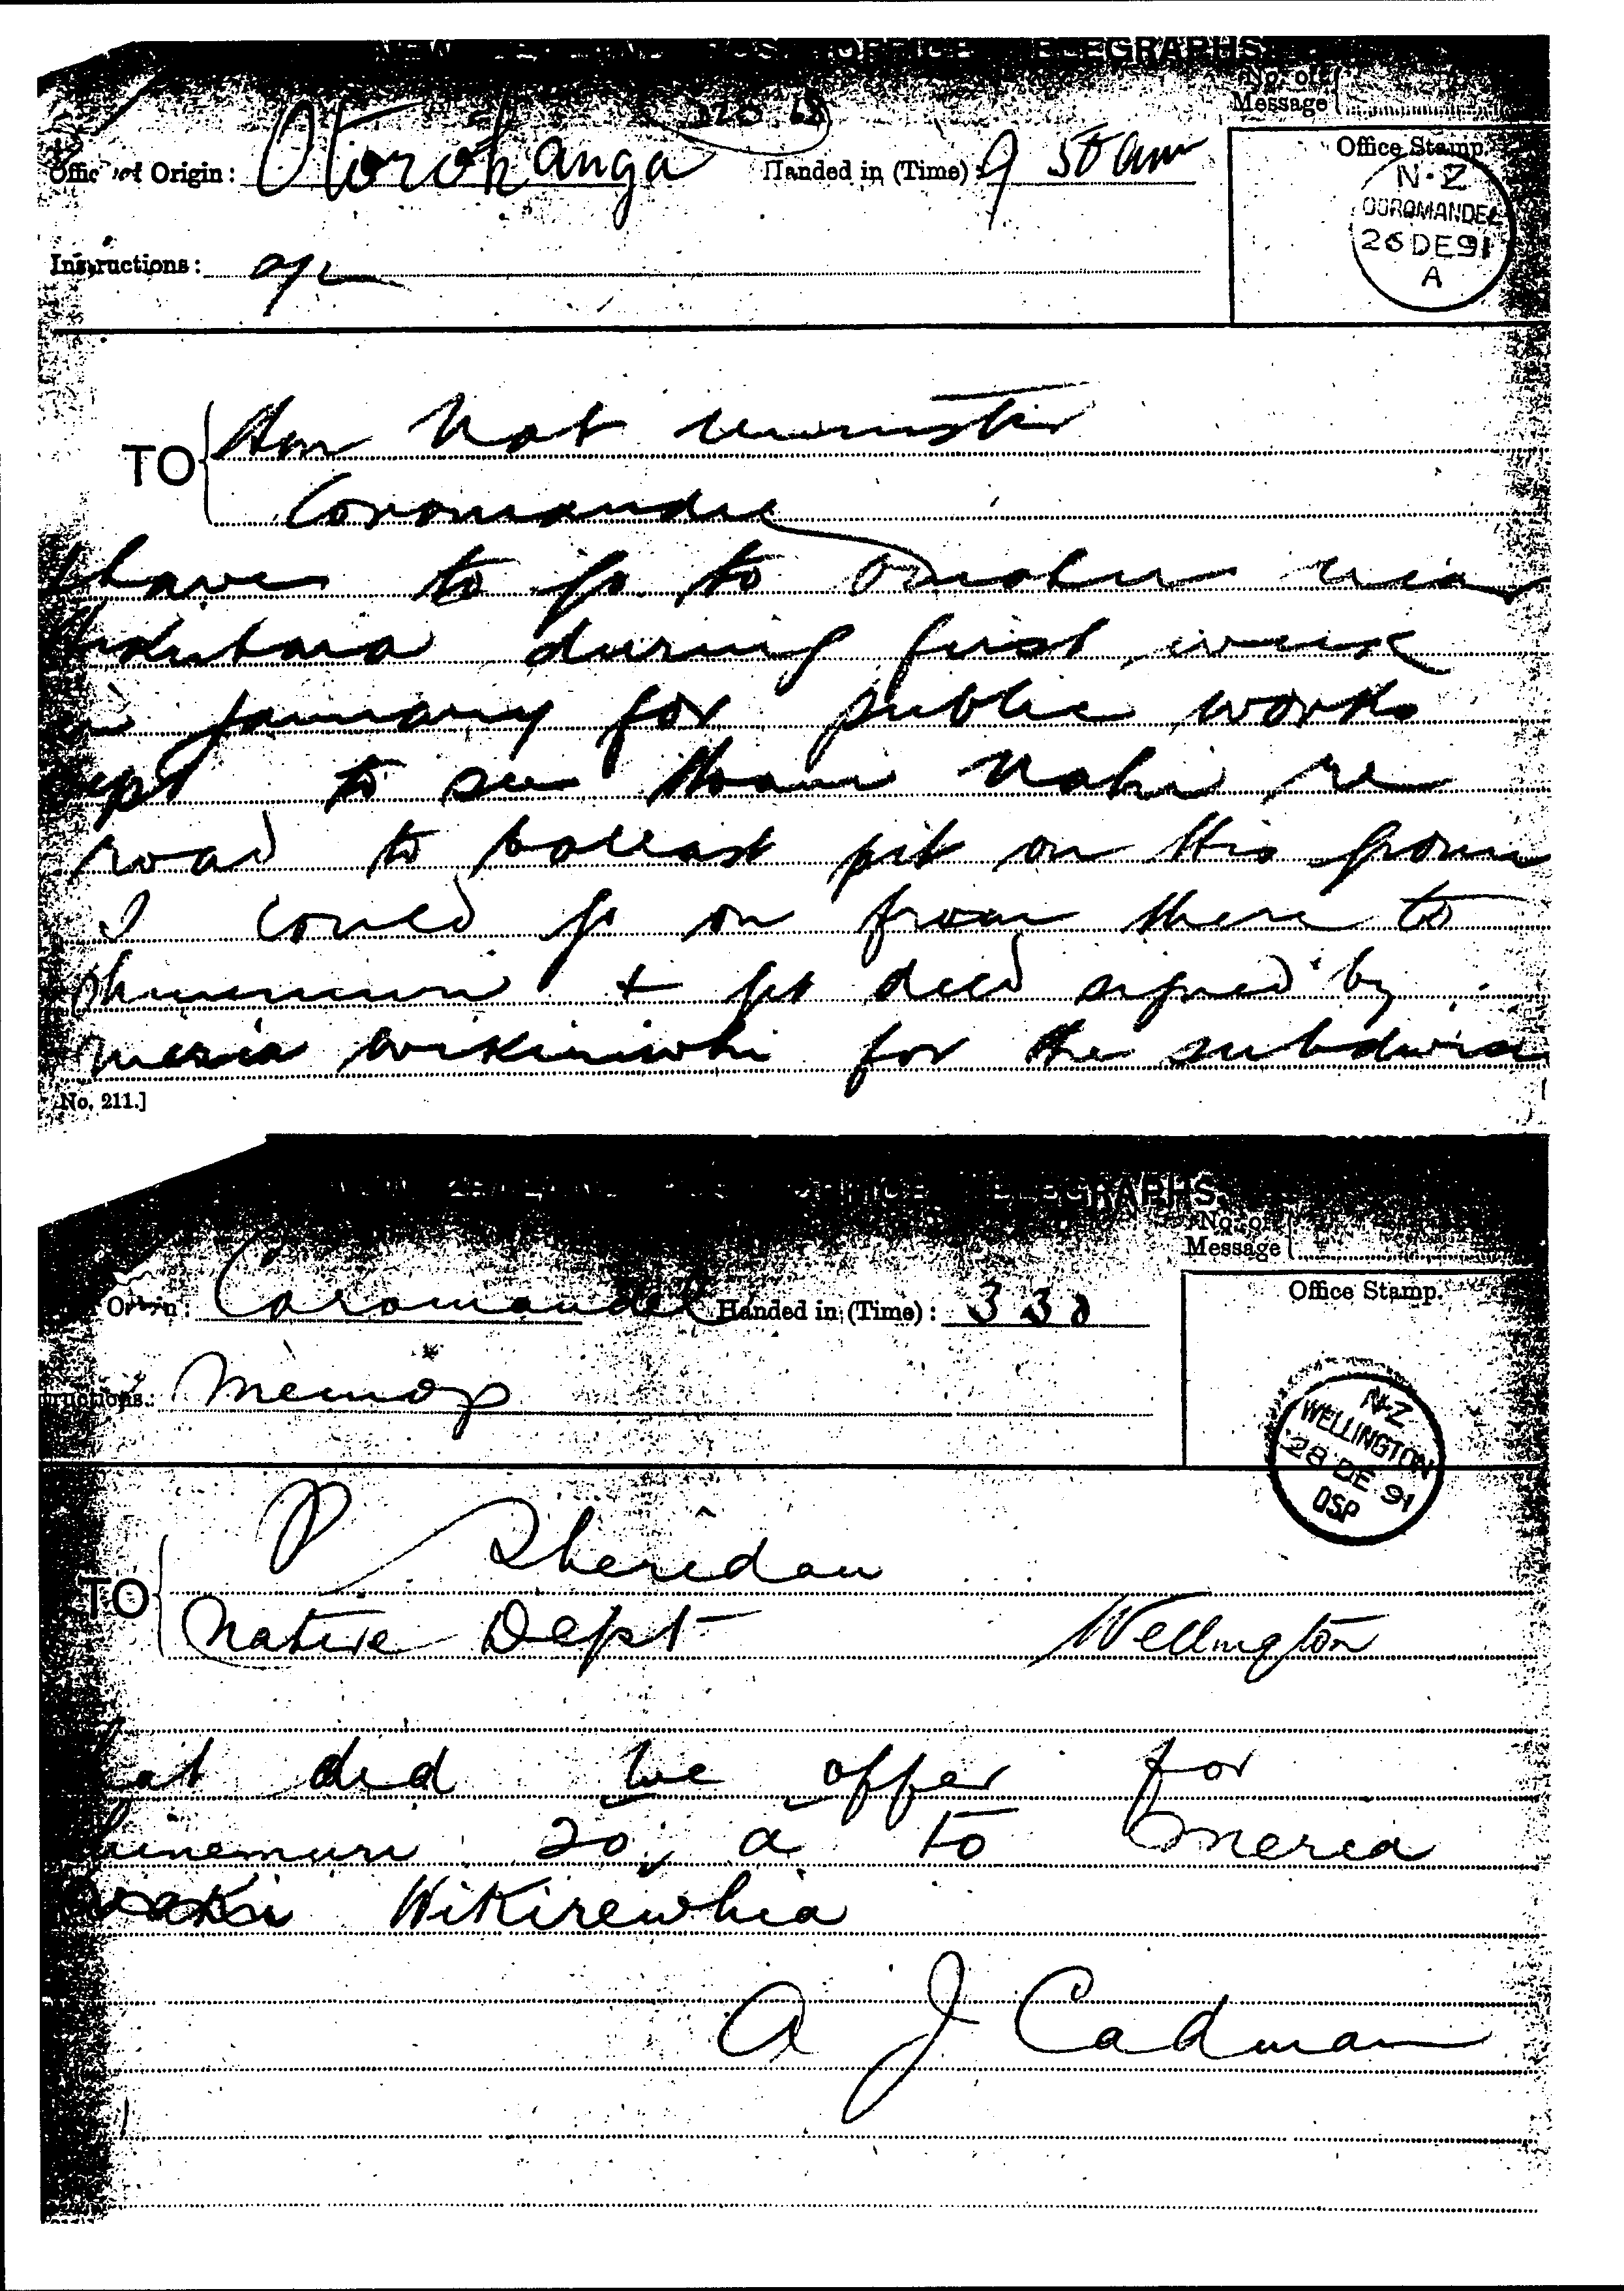 NEW ZEALAND POST OFFICE TELEGRAPHS.
No. of
Message
Office of Origin: Otorohanga Handed in (Time) 9 50 am
Office Stamp.
N·Z
COROMANDEL
26 DE 91
A
Instructions:
TO Hon Nat minister
Coromandel
I have to go to via
during first week
in January for public works
dept to see Hoani Nahi re
road to ballast pit on this
I could go on from there to
+ get deed signed by
meria for the
No. 211.]
NEW ZEALAND POST OFFICE TELEGRAPHS.
No. of
Message
Origin: Coromandel Handed in (Time): 3 30
Office Stamp.
N·Z
WELLINGTON
28 DE 91
OSP
Instructions:
TO P Sheridan
Native Dept Wellington
at did we offer for
hinemuri 20 a to Meria
Wikirewhia
A J Cadman